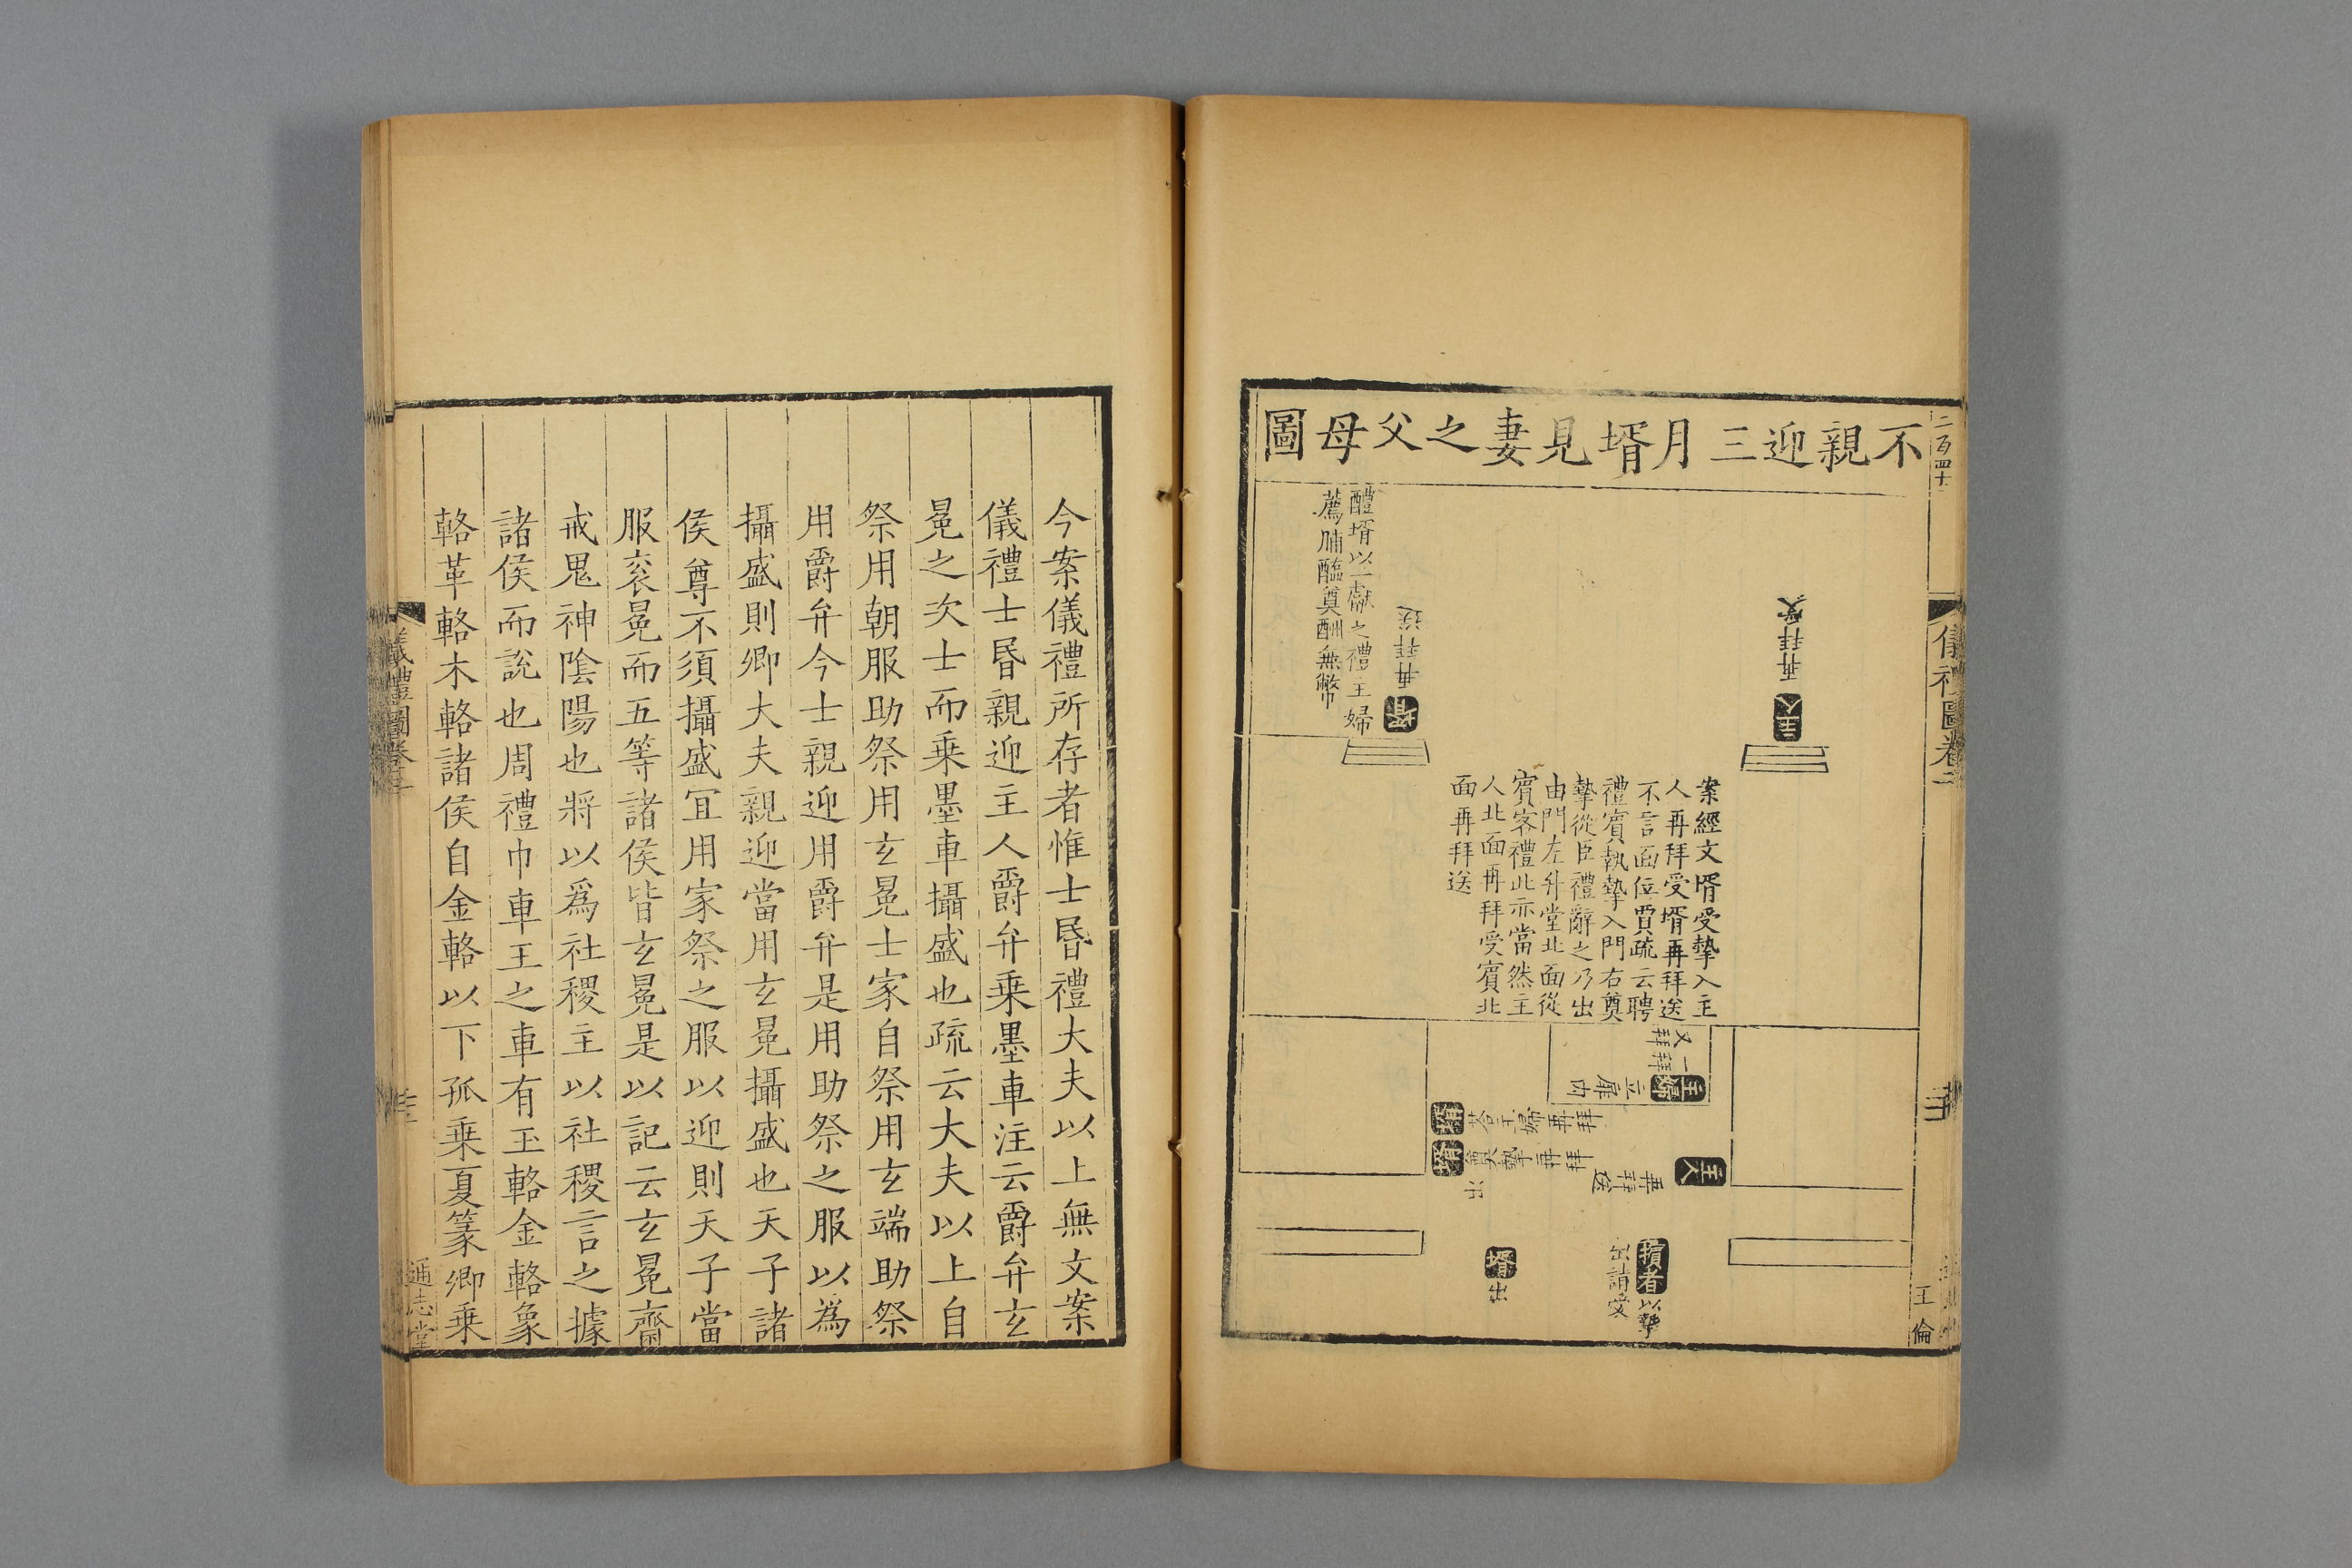 二百四十
儀禮圖卷二
王倫
不親迎三月壻見妻之父母圖
主人
再拜受
壻
再拜送
醴壻以一獻之禮主婦
薦脯醢奠酬無幣
案經文壻受摯入主
人再拜受壻再拜送
不言面位賈疏云聘
禮賓執摯入門右奠
摯從臣禮辭之乃出
由門左升堂北面從
賓客禮此亦當然主
人北面再拜受賓北
面再拜送
主婦
一拜
又拜
立扉內
壻
荅主婦再拜
壻
奠摯再拜
出
主人
再拜送
擯者以摯
出請受
壻出
今案儀禮所存者惟士昏禮大夫以上無文案
儀禮士昏親迎主人爵弁乗墨車注云爵弁玄
冕之次士而乗墨車攝盛也疏云大夫以上自
祭用朝服助祭用玄冕士家自祭用玄端助祭
用爵弁今士親迎用爵弁是用助祭之服以為
攝盛則卿大夫親迎當用玄冕攝盛也天子諸
侯尊不須攝盛宜用家祭之服以迎則天子當
服衮冕而五等諸侯皆玄冕是以記云玄冕齋
戒鬼神陰陽也將以爲社稷主以社稷言之據
諸侯而說也周禮巾車王之車有玉輅金輅象
輅革輅木輅諸侯自金輅以下孤乗夏篆卿乗
儀禮圖卷二
通志堂